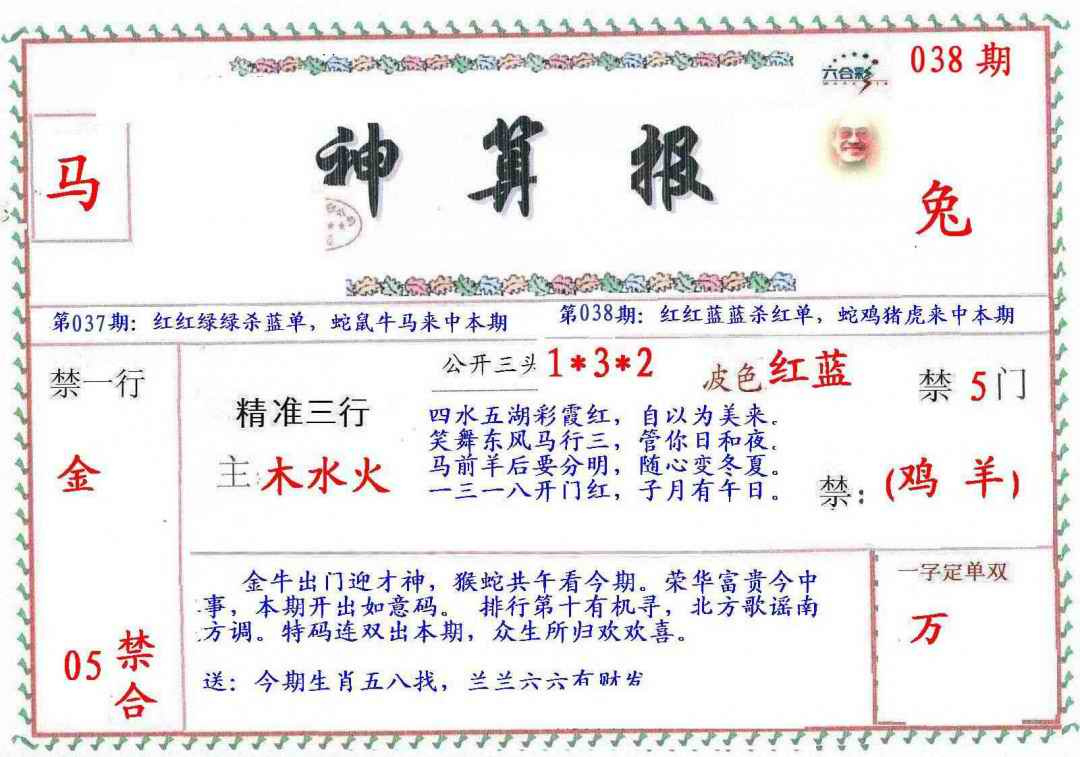 038期
六合彩
神算报
马
兔
第037期：红红绿绿杀蓝单，蛇鼠牛马来中本期
第038期：红红蓝蓝杀红单，蛇鸡猪虎来中本期
禁一行
金
05
禁
合
精准三行
主:木水火
公开三头 1*3*2
波色 红蓝
四水五湖彩霞红，自以为美来。
笑舞东风马行三，管你日和夜。
马前羊后要分明，随心变冬夏。
一三一八开门红，子月有午日。
禁5门
禁：(鸡 羊)
金牛出门迎才神，猴蛇共午看今期。荣华富贵今中
事，本期开出如意码。 排行第十有机寻，北方歌谣南
方调。特码连双出本期，众生所归欢欢喜。
送：今期生肖五八找，兰兰六六有财发
一字定单双
万